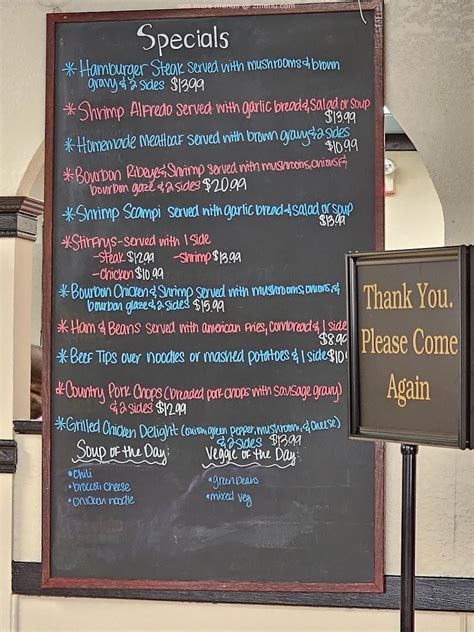 see more menus @ zmenu.com
Specials
* Hamburger Steak served with mushrooms & brown
gravy & 2 sides $13.99
* Shrimp Alfredo served with garlic bread & salad or soup
$13.99
* Homemade Meatloaf served with brown gravy & 2 sides
$10.99
* Bourbon Ribeye & Shrimp served with mushrooms, onions &
bourbon glaze & 2 sides $20.99
* Shrimp Scampi served with garlic bread & salad or soup
$13.99
* Stirfrys - served with 1 side
- Steak $12.99 - shrimp $13.99
- chicken $10.99
* Bourbon Chicken & Shrimp served with mushrooms, onions, &
bourbon glaze & 2 sides $15.99
* Ham & Beans served with american fries, cornbread & 1 side
$8.99
* Beef Tips over noodles or mashed potatoes & 1 side $10
* Country Pork Chops (breaded pork chops with sausage gravy)
& 2 sides $12.99
* Grilled Chicken Delight (onion, green pepper, mushroom, & cheese)
& 2 sides $13.99
Soup of the Day:
• chili
• broccoli cheese
• chicken noodle
Veggie of the Day:
• green beans
• mixed veg
Thank You.
Please Come
Again